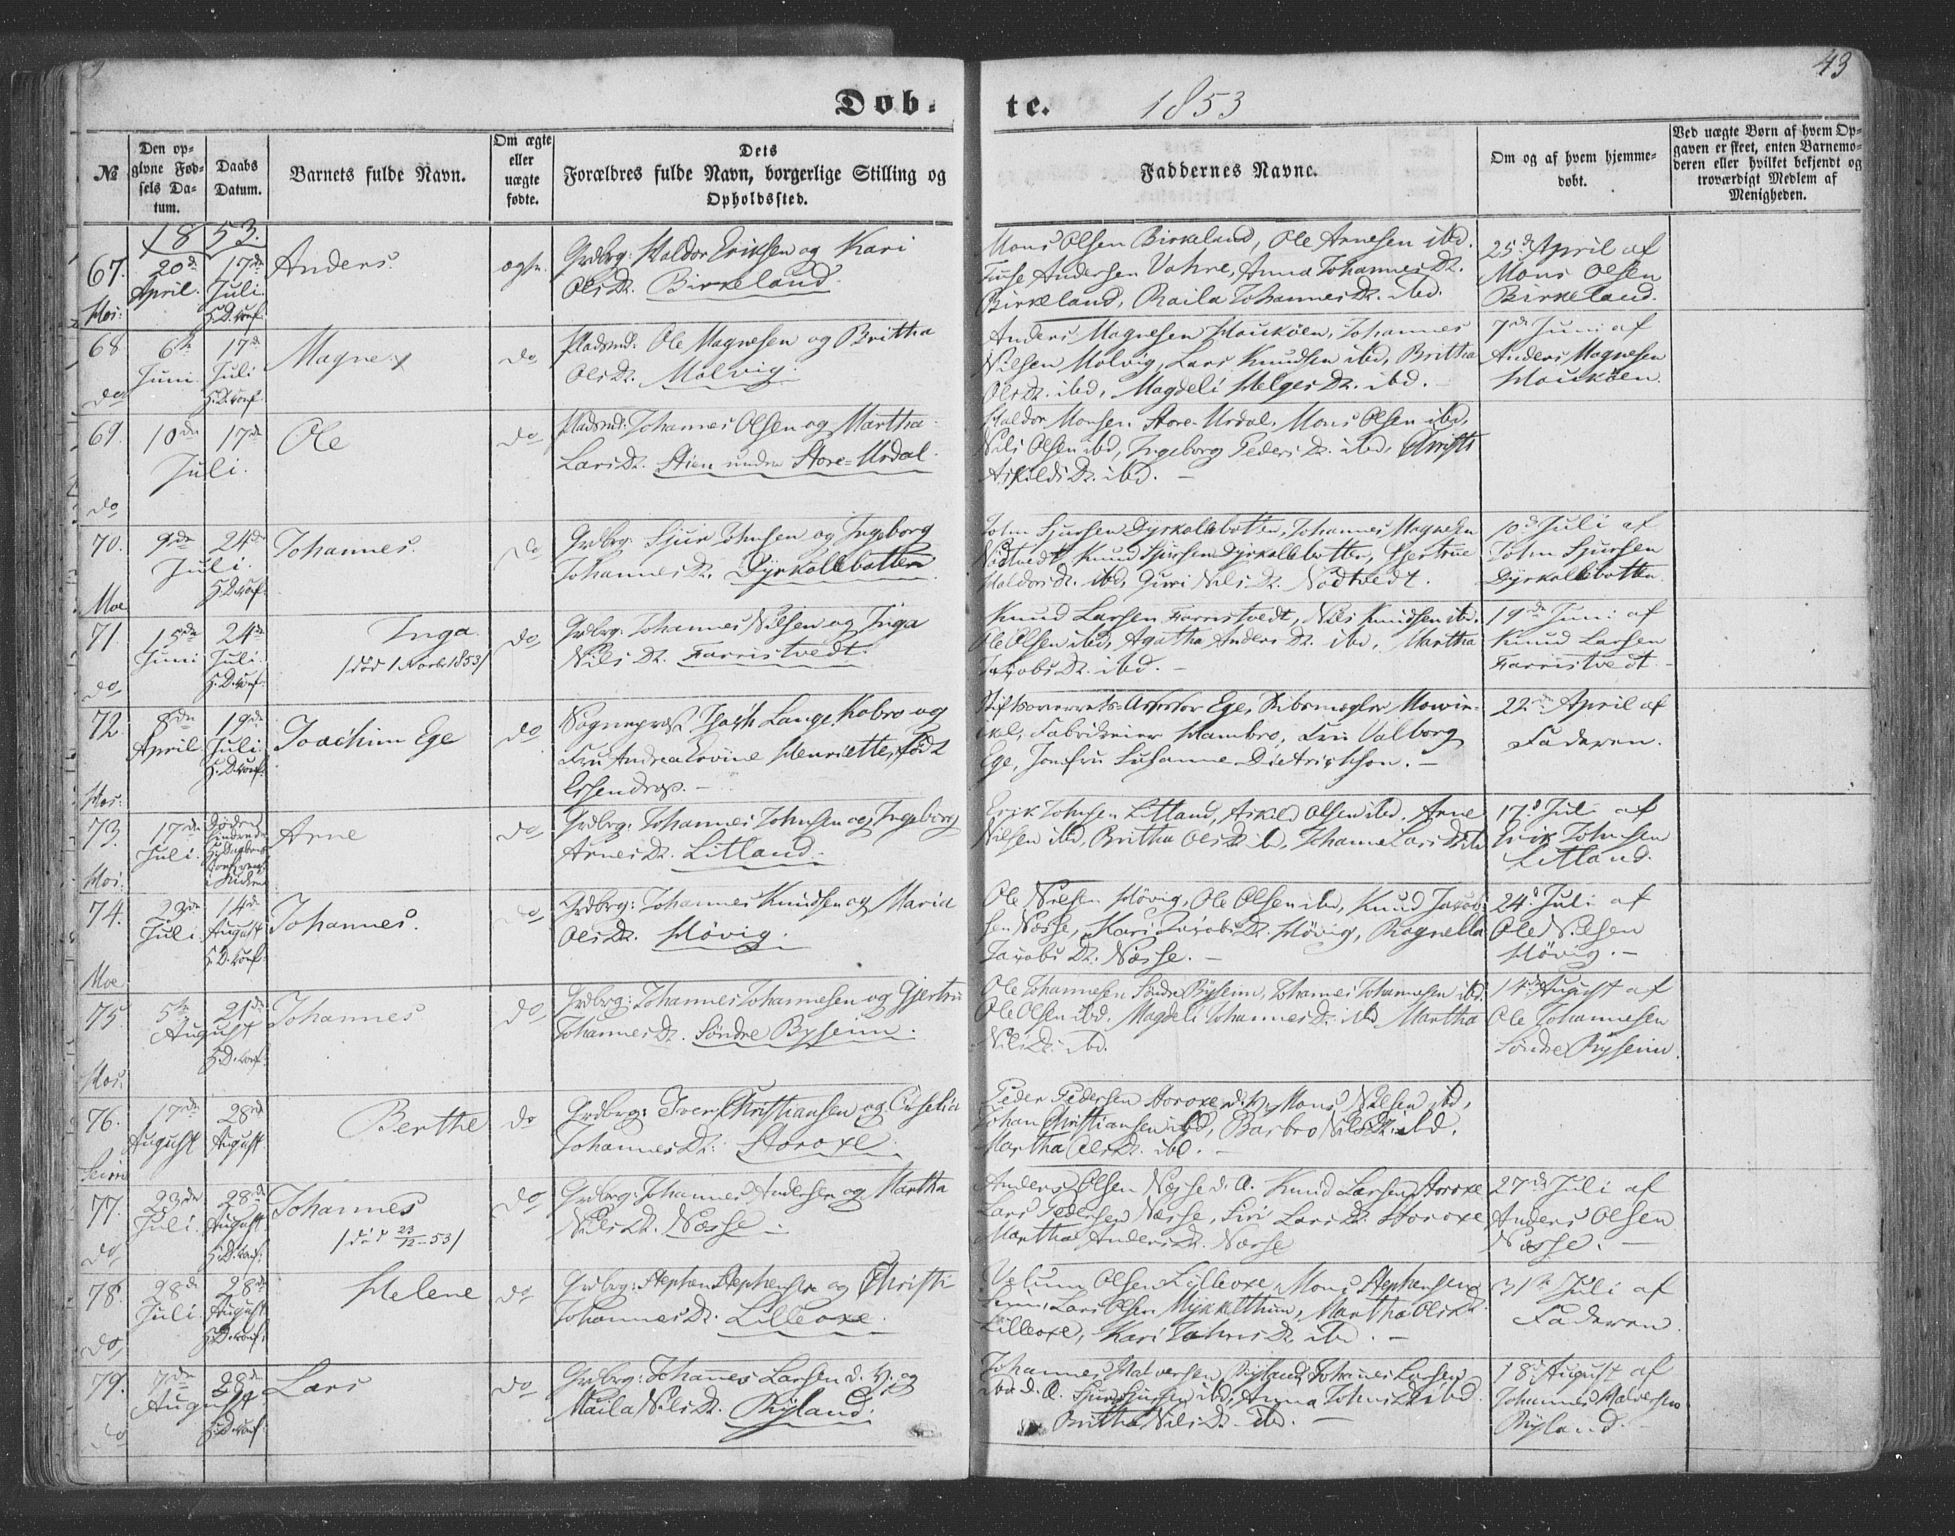 43
Døb-
te.
1853
№
Den op-
givne Fød-
sels Da-
tum.
Daabs
Datum.
Barnets fulde Navn.
Om ægte
eller
uægte
fødte.
Dets
Forældres fulde Navn, borgerlige Stilling og
Opholdssted.
Faddernes Navne.
Om og af hvem hjemme-
døbt.
Ved uægte Børn af hvem Op-
gaven er skeet, enten Barnemo-
deren eller hvilket bekjendt og
troværdigt Medlem af
Menigheden.
1853.
67.
Hos:
20de
April.
17de
Juli.
H.D. conf.
Anders.
ægte.
Grdbrg: Haldor Eriksen og Kari
OlsDr. Birkeland.
Mons Olsen Birkeland, Ole Arnesen ibd.
Andersen Vahre, Anna JohannesDr.
Birkeland, Raila JohannesDr. ibd.
25de April af
Mons Olsen
Birkeland.
68.
do
6te
Juni
17de
Juli
H.D. conf.
Magne
do
Pladsmd: Ole Magnesen og Britha
OlsDr. Molvig.
Anders Magnesen Houköen, Johannes
Nilsen Molvig, Lars Knudsen ibd, Britha
OlsDr. ibd, Magdeli HelgesDr. ibd.
7de Juni af
Anders Magnesen
Houköen.
69.
do
10de 17de
Juli.
Ole
do
Pladsmd: Johannes Olsen og Martha
LarsDr. Stien under Store-Urdal.
Haldor Monsen Store-Urdal, Mons Olsen ibd,
Nils Olsen ibd, Ingeborg PedersDr. ibd, Christi
AskildsDr. ibd.
70.
Moe
9de 24de
Juli.
H.D. conf.
Johannes.
do
Grdbrg: Sjur Johnsen og Ingeborg
JohannesDr. Dyrkollebotten
John Sjursen Dyrkollebotten, Johannes Magnesen
Nödtvedt, Knud Sjursen Dyrkollebotten, Gjertrue
HaldorsDr. ibd, Guri NilsDr. Nödtvedt.
10de Juli af
John Sjursen
Dyrkollebotten
71.
do
15de
Juni
24de
Juli.
H.D. conf.
Inga.
/död 1 Novb 1853/
do
Grdbrg: Johannes Nilsen og Inga
NilsDr. Farristvedt.
Knud Larsen Farristvedt, Nils Knudsen ibd.
Ole Olsen ibd, Agatha AndersDr. ibd, Martha
JacobsDr. ibd.
19de Juni af
Knud Larsen
Farristvedt
72.
Hos:
8de
April
19de
Juli.
H.D. conf.
Joachim Ege
do
Sognepræst Lange Kobro og
Fru Andrea Lovine Henriette, født
Essendrop.
Stiftsoverrets-Assessor Ege, Skibsmægler Mowin-
kel, Fabrikeier Hambro, Fru Valborg
Ege, Jomfru Susanne Dietrichson.
22de April af
Faderen.
73.
Hos:
17de
Juli.
Arne
do
Grdbrg: Johannes Johnsen og Ingeborg
ArnesDr. Litland.
Erik Johnsen Litland, Askild Olsen ibd. Arne
Nilsen ibd, Britha OlsDr. ib, Johanne LarsDr. ib
17de Juli af
Erik Johnsen
Litland.
74.
Moe
23de
Juli
14de
August
H.D. conf.
Johannes.
do
Grdbrg: Johannes Knudsen og Maria
OlsDr. Hövig.
Ole Nilsen Hövig, Ole Olsen ibd, Knud Jacob-
sen Næsse, Kari JacobsDr. Hövig, Ragnella
JacobsDr. Næsse.
24de Juli af
Ole Nilsen
Hövig.
75.
Hos:
5te 21de
August
H.D. conf.
Johannes
do
Grdbrg: Johannes Johannesen og Gjertru
JohannesDr. Söndre Rysenn.
Ole Johannesen Söndre Rysenn, Johannes Johannesen ibd.
Ole Olsen ibd. Magdeli JohannesDr. ibd Martha
NilsDr. ibd.
14de August af
Ole Johannesen
Söndre Rysenn.
76.
17de
August
28de
August
Berthe
do
Grdbrg: Iver Christiansen og Cicelia
JohannesDr: Storoxe.
Peder Pedersen Storoxe d.y. Mons Nilsen ibd,
Johan Christiansen ibd, Barbro NilsDr. ibd.
Martha OlsDr. ibd.
77.
do
23de
Juli.
28de
August
H.D. conf.
Johannes
/död 23/12-53/
do
Grdbrg: Johannes Andersen og Martha
NilsDr. Næsse
Anders Olsen Næsse d.Æ. Knud Larsen Storoxe
Lars Pedersen Næsse, Siri LarsDr. Storoxe
Martha AndersDr. Næsse
27de Juli af
Anders Olsen
Næsse.
78.
do
28de
Juli
28de
August
H.D. conf.
Helene
do
Grdbrg: Stephen Stephensen og Christi
JohannesDr. Lilleoxe.
Olsen Lilleoxe, Mons Stephensen
Lars Olsen Mykletthun, Martha OlsDr.
Lilleoxe, Kari JohnsDr. ibd.
31te Juli af
Faderen.
79.
do
7de 28de
August
H.D. conf.
Lars
do
Grdbrg: Johannes Larsen d. y. og
Maila NilsDr. Ryland.
Johannes Halversen Ryland, Johannes Larsen
ibd d.Æ. Sjur Sjursen ibd, Anna JohnsDr. ibd.
Britha NilsDr. ibd.
18de August af
Johannes Halversen
Ryland.